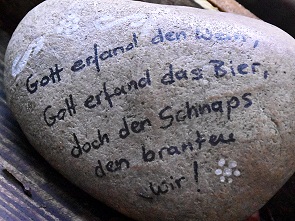 Gott erfand den Wein,
Gott erfand das Bier,
doch den Schnaps
den branten
wir!